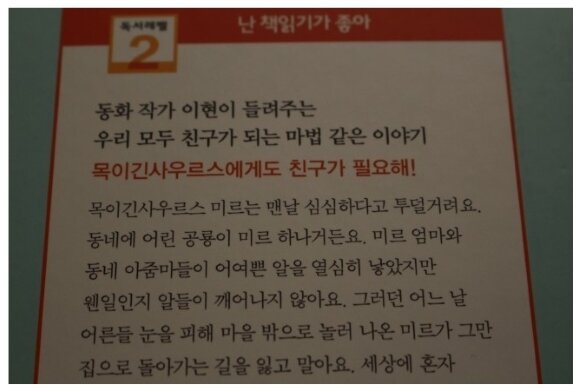 난 책읽기가 좋아
독서레벨
2
동화 작가 이현이 들려주는
우리 모두 친구가 되는 마법 같은 이야기
목이긴사우르스에게도 친구가 필요해!
목이긴사우르스 미르는 맨날 심심하다고 투덜거려요.
동네에 어린 공룡이 미르 하나거든요. 미르 엄마와
동네 아줌마들이 어여쁜 알을 열심히 낳았지만
웬일인지 알들이 깨어나지 않아요. 그러던 어느 날
어른들 눈을 피해 마을 밖으로 놀러 나온 미르가 그만
집으로 돌아가는 길을 잃고 말아요. 세상에 혼자